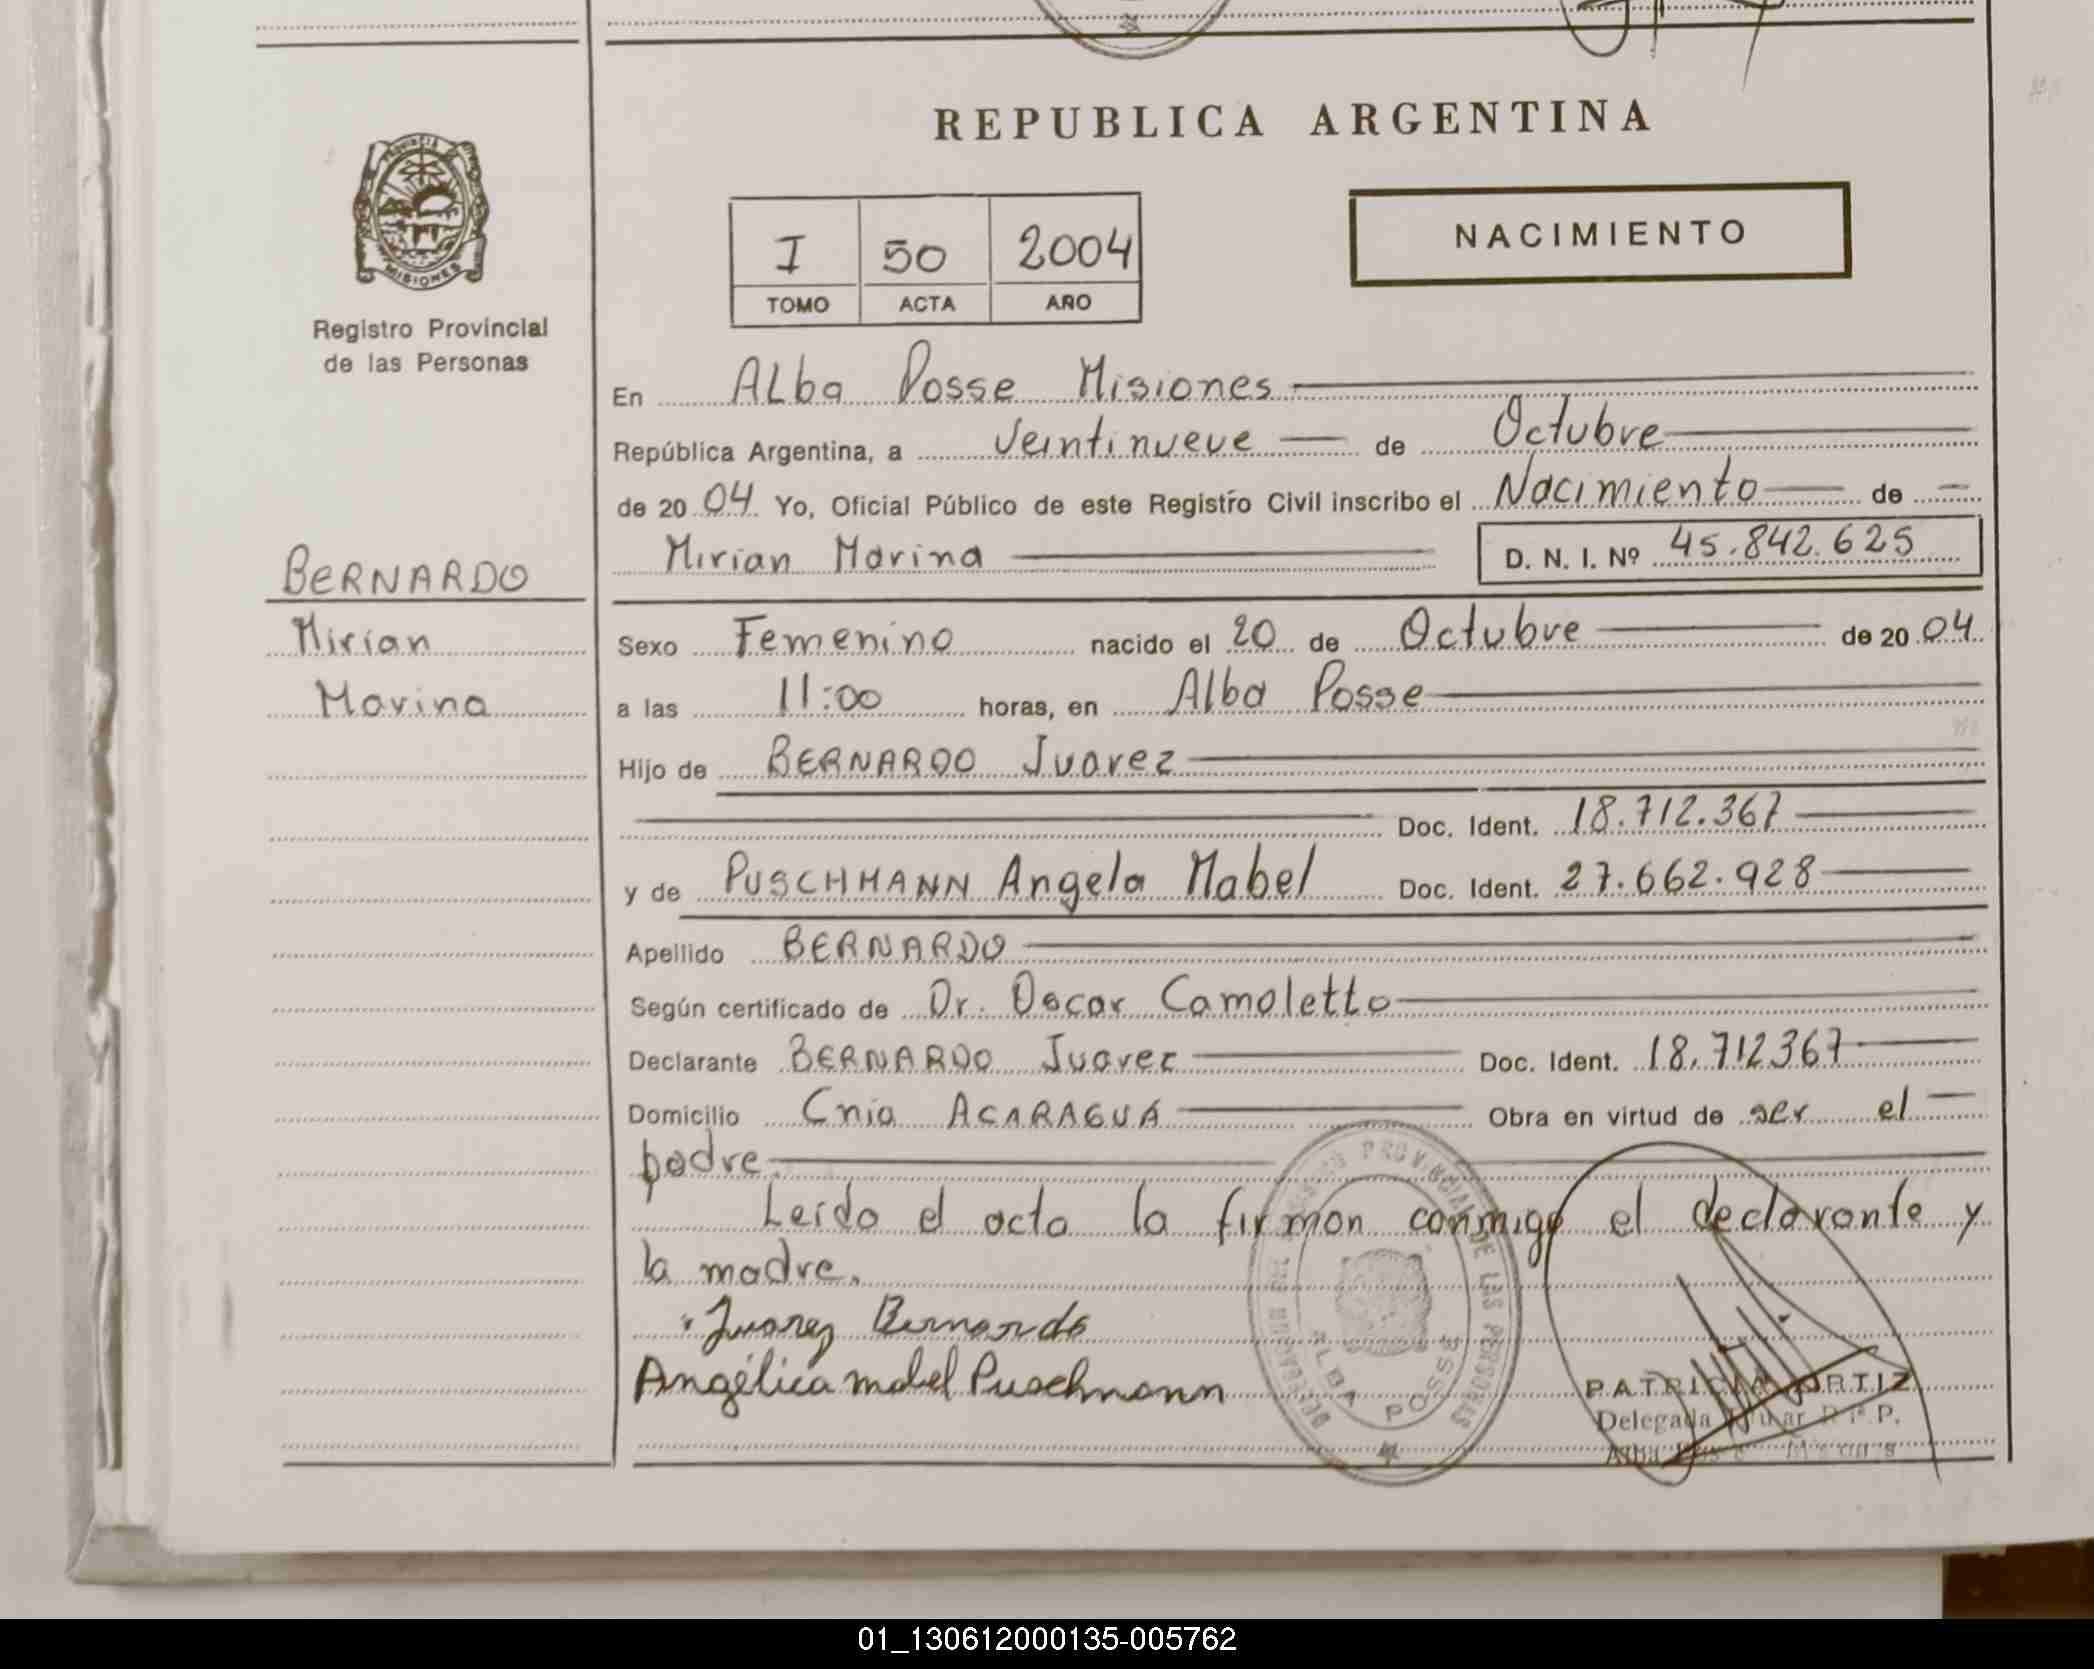 REPUBLICA ARGENTINA
PROVINCIA DE
MISIONES
Registro Provincial
de las Personas
I 50 2004
TOMO ACTA AÑO
NACIMIENTO
En Alba Posse Misiones
República Argentina, a Veintinueve de Octubre
de 20 04 Yo, Oficial Público de este Registro Civil inscribo el Nacimiento de
Mirian Marina D. N. I. Nº 45.842.625
BERNARDO
Mirian
Marina
Sexo Femenino nacido el 20 de Octubre de 20 04
a las 11:00 horas, en Alba Posse
Hijo de BERNARDO Juarez
Doc. Ident. 18.712.367
y de PUSCHMANN Angela Mabel Doc. Ident. 27.662.928
Apellido BERNARDO
Según certificado de Dr. Oscar Camoletto
Declarante BERNARDO Juarez Doc. Ident. 18.712367
Domicilio Cnia ACARAGUÁ Obra en virtud de ser el
padre.
Leído el acta la firman conmigo el declarante y
la madre.
Juarez Bernardo
Angélica mabel Puschmann
PROVINCIAL DE LAS PERSONAS
ALBA POSSE
PATRICIA ORTIZ
Delegada Titular R.P.P.
Alba Posse Misiones
01_130612000135-005762